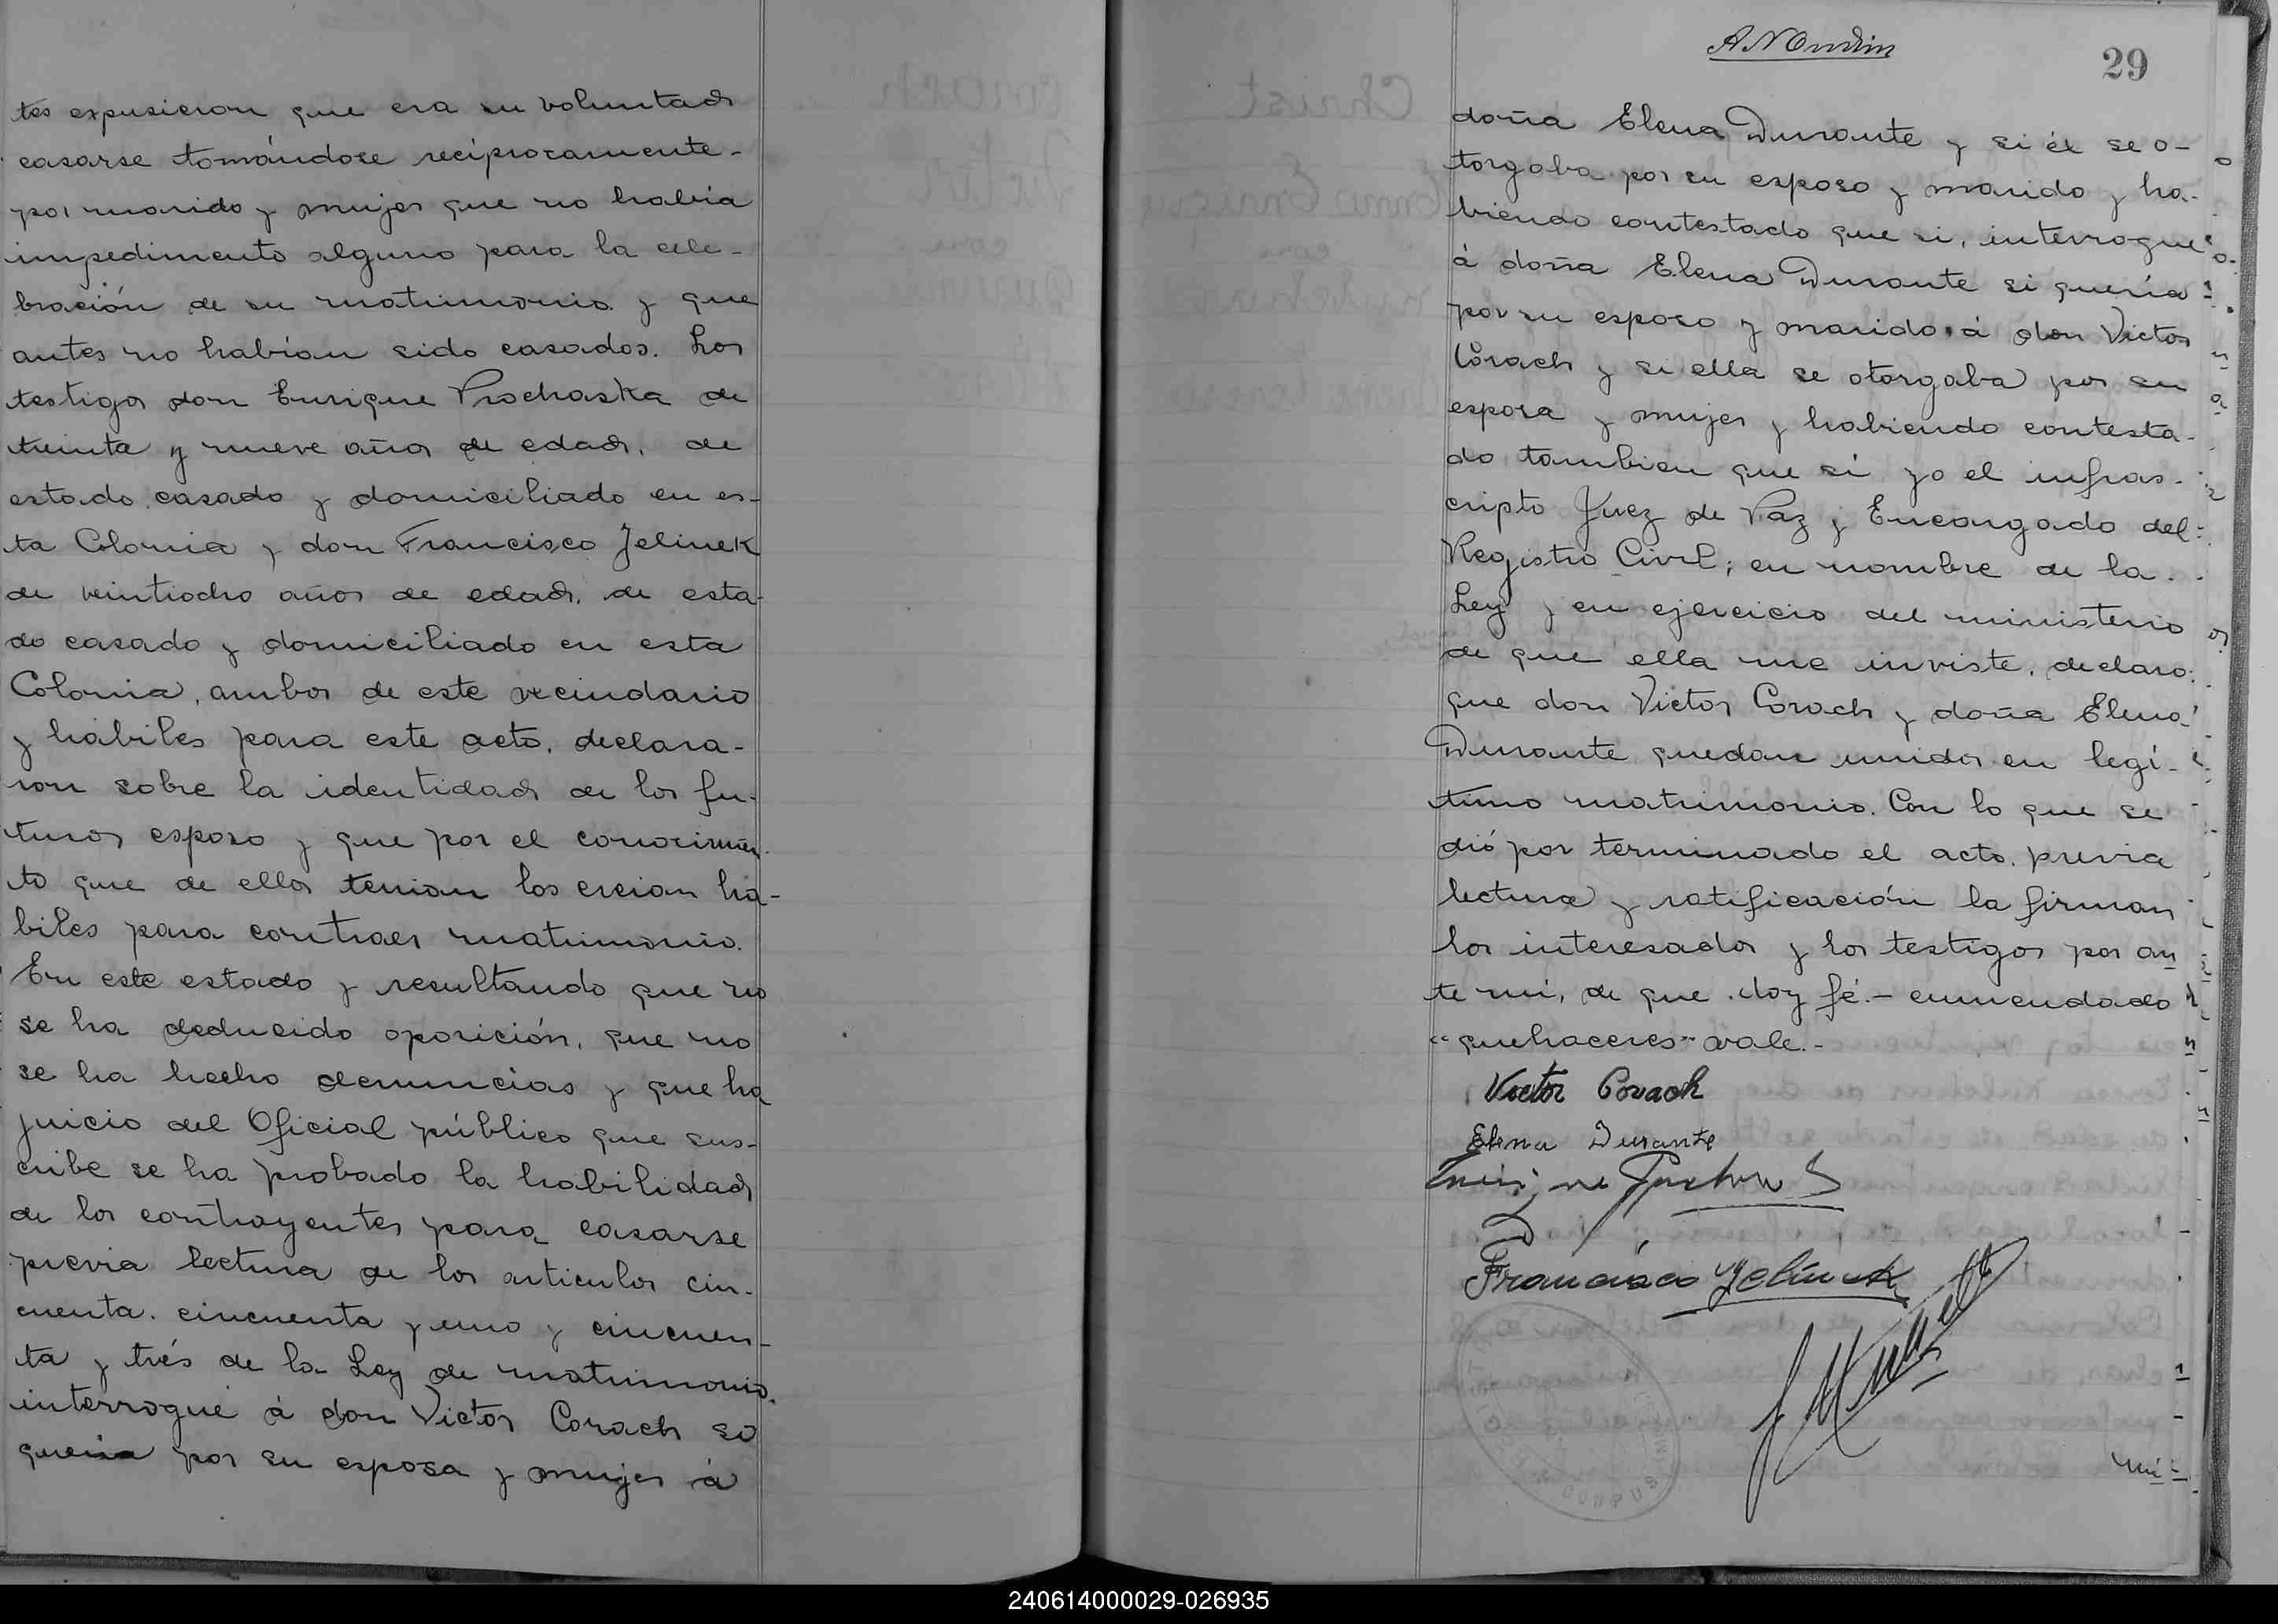 tes expusieron que era su voluntad
casarse tomándose recíprocamente-
por marido y mujer que no había
impedimento alguno para la cele-
bración de su matrimonio y que
antes no habían sido casados. Los
testigos don Enrique Prochaska de
treinta y nueve años de edad, de
estado casado y domiciliado en es-
ta Colonia y don Francisco Jelinek
de veintiocho años de edad, de esta-
do casado y domiciliado en esta
Colonia, ambos de este vecindario
y hábiles para este acto, declara-
ron sobre la identidad de los fu-
turos esposo y que por el conocimien-
to que de ellos tenian los creian há-
biles para contraer matrimonio.
En este estado y resultando que no
se ha deducido oposición, que no
se ha hecho denuncias y que ha
juicio del Oficial público que sus-
cribe se ha probado la habilidad
de los contrayentes para casarse
previa lectura de los articulos cin-
cuenta. cincuenta y uno y cincuen-
ta y trés de la Ley de matrimonio.
interrogué á don Victor Corach si
queria por su esposa y mujer á
29
doña Elena Durante y si él se o-
torgaba por su esposo y marido y ha-
biendo contestado que si, interrogué
á doña Elena Durante si quería
por su esposo y marido á don Victor
Corach y si ella se otorgaba por su
esposa y mujer y habiendo contesta-
do tambien que sí yo el infras-
cripto Juez de Paz y Encargado del
Registro Civil; en nombre de la
Ley y en ejercicio del ministerio
de que ella me inviste, declaro:
que don Victor Corach y doña Elena
Durante quedan unidos en legí-
timo matrimonio. Con lo que se
dió por terminado el acto. previa
lectura y ratificación la firman
los interesados y los testigos por an
te mí, de que doy fé.- enmendado
"quehaceres" vale.-
Victor Corach
Elena Durante
Francisco Jelinek
240614000029-026935